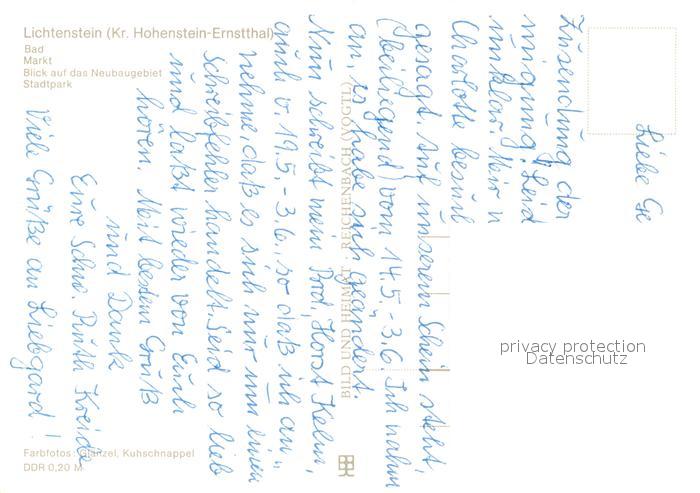 Lichtenstein (Kr. Hohenstein-Ernstthal)
Bad
Markt
Blick auf das Neubaugebiet
Stadtpark
Liebe Ge
Zusendung der
migung. Leid
unklar. Wir u
Charlotte besuch
gesagt. Auf unserem Schein steht,
(beiliegend) vom 14.5.-3.6. Ich nahm
an, es habe sich geändert.
Nun schreibt mein Brd. Horst Kelm,
auch v. 19.5.-3.6., so daß ich an„
nehme, daß es sich nur um einen
Schreibfehler handelt. Seid so lieb
und laßt wieder von Euch
hören. Mit bestem Gruß
und Dank
Eure Schw. Ruth Kreide
Viele Grüße an Liebgard!
BILD UND HEIMAT REICHENBACH (VOGTL)
privacy protection
Datenschutz
Farbfotos: Glänzel, Kuhschnappel
DDR 0,20 M